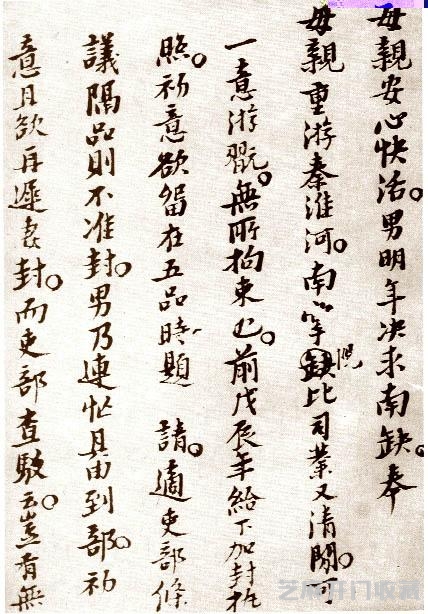 母親安心快活。男明年决求南缺。奉
母親重游秦淮河。南缺比司業又清閒。可
一意游翫。無所拘束也。前戊辰年給下加封
照。初意欲留在五品時題 請。適吏部條
議隔品則不准封。男乃連忙具由到部。初
意且欲再遲封。而吏部查駁云。豈有無